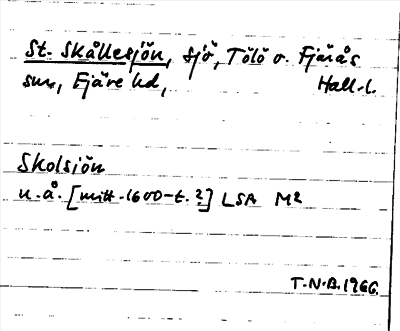 St. Skållesjön, sjö, Tölö o. Fjärås
snr, Fjäre hd, Hall. l.
Skolsjön
u. å. [mitt. 1600-t. ?] LSA M2
T.N.B. 1966.